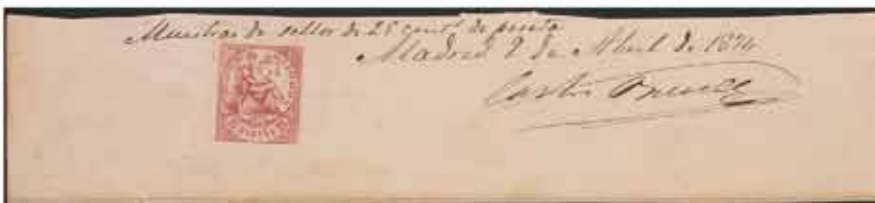 Muestras de sellos de 25 cents de peseta
Madrid 2 de Abril de 1874